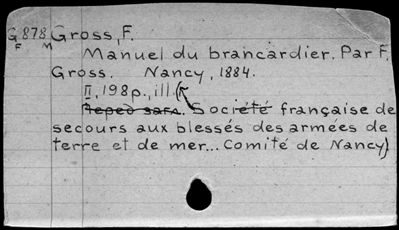 G 878 Gross, F.
F M
Manuel du brancardier. Par F.
Gross. Nancy, 1884.
II, 198 p., ill. (
Société française de
secours aux blessés des armées de
terre et de mer... Comité de Nancy)